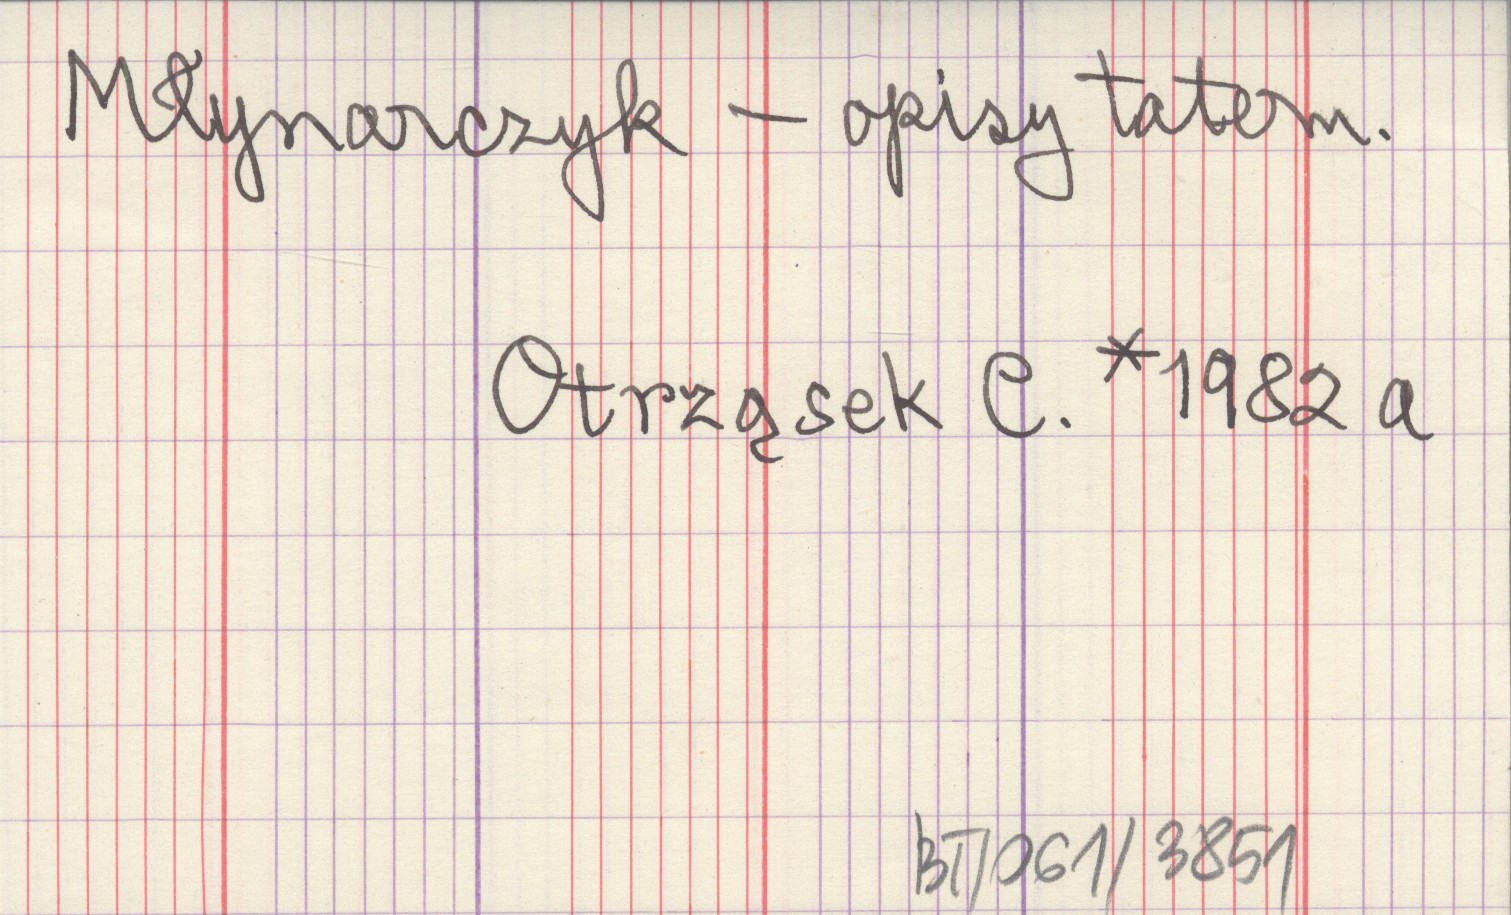 Młynarczyk – opisy tatern.
Otrząsek C. *1982 a
BT/061/3851